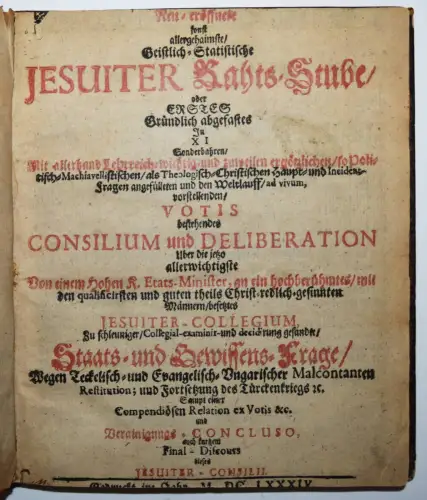 Neu-eröffnete
sonst
allergehaimste/
Geistlich-Statistische
JESUITER Rahts-Stube/
oder
ERSTES
Gründlich abgefastes
In
XI
Sonderbahren/
Mit allerhand Lehrreich-wichtig-und zuweilen ergötzlichen/ so Poli-
tisch-Machiavellistischen/ als Theologisch-Christlichen Haupt-und Incidenz-
Fragen angefülleten und den Weltlauff/ ad vivum,
vorstellenden/
VOTIS
bestehendes
CONSILIUM und DELIBERATION
Uber die jetzo
allerwichtigste
Von einem Hohen K. Etats-Minister, an ein hochberühmtes/ mit
den qualificirsten und guten theils Christ-redlich-gesinnten
Männern/ besetztes
JESUITER-COLLEGIUM,
Zu schleuniger/ Collegial-examinir-und decidirung gesandte/
Staats-und Gewissens-Frage/
Wegen Teckelisch-und Evangelisch-Ungarischer Malcontanten
Restitution; und Fortsetzung des Türckenkriegs ꝛc.
Sampt einer
Compendiösen Relation ex Votis &c.
und
Vereinigungs-CONCLUSO,
auch kurtzem
Final-Discours
dieses
JESUITER-CONSILII.
Gedruckt im Jahr M. DC LXXXIV.